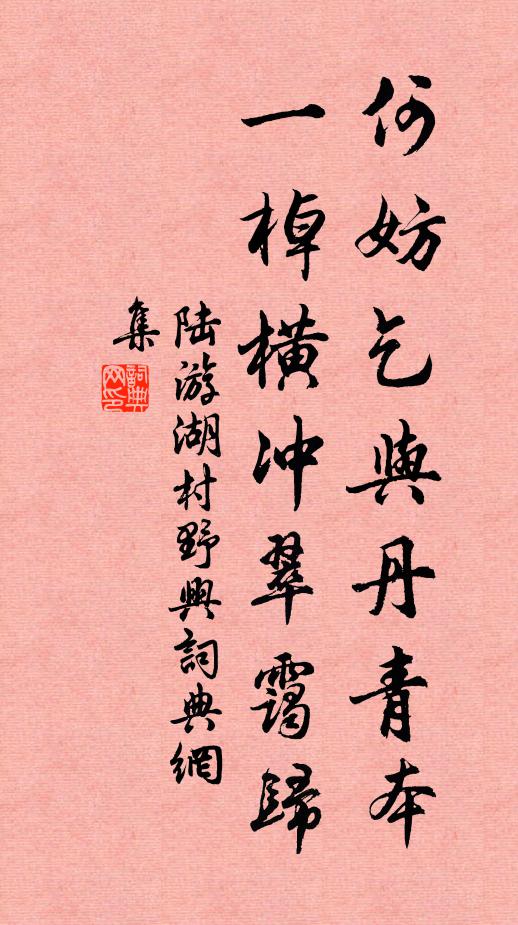 何妨乞與丹青本
一棹橫冲翠靄歸
陆游湖村野興詞典網
集
詞典網印